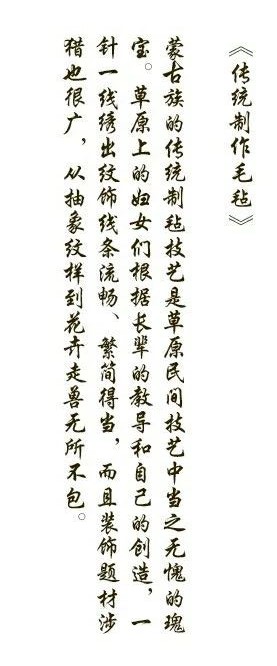 《传统制作毛毡》
蒙古族的传统制毡技艺是草原民间技艺中当之无愧的瑰
宝。草原上的妇女们根据长辈的教导和自己的创造，一
针一线绣出纹饰线条流畅、繁简得当，而且装饰题材涉
猎也很广，从抽象纹样到花卉走兽无所不包。